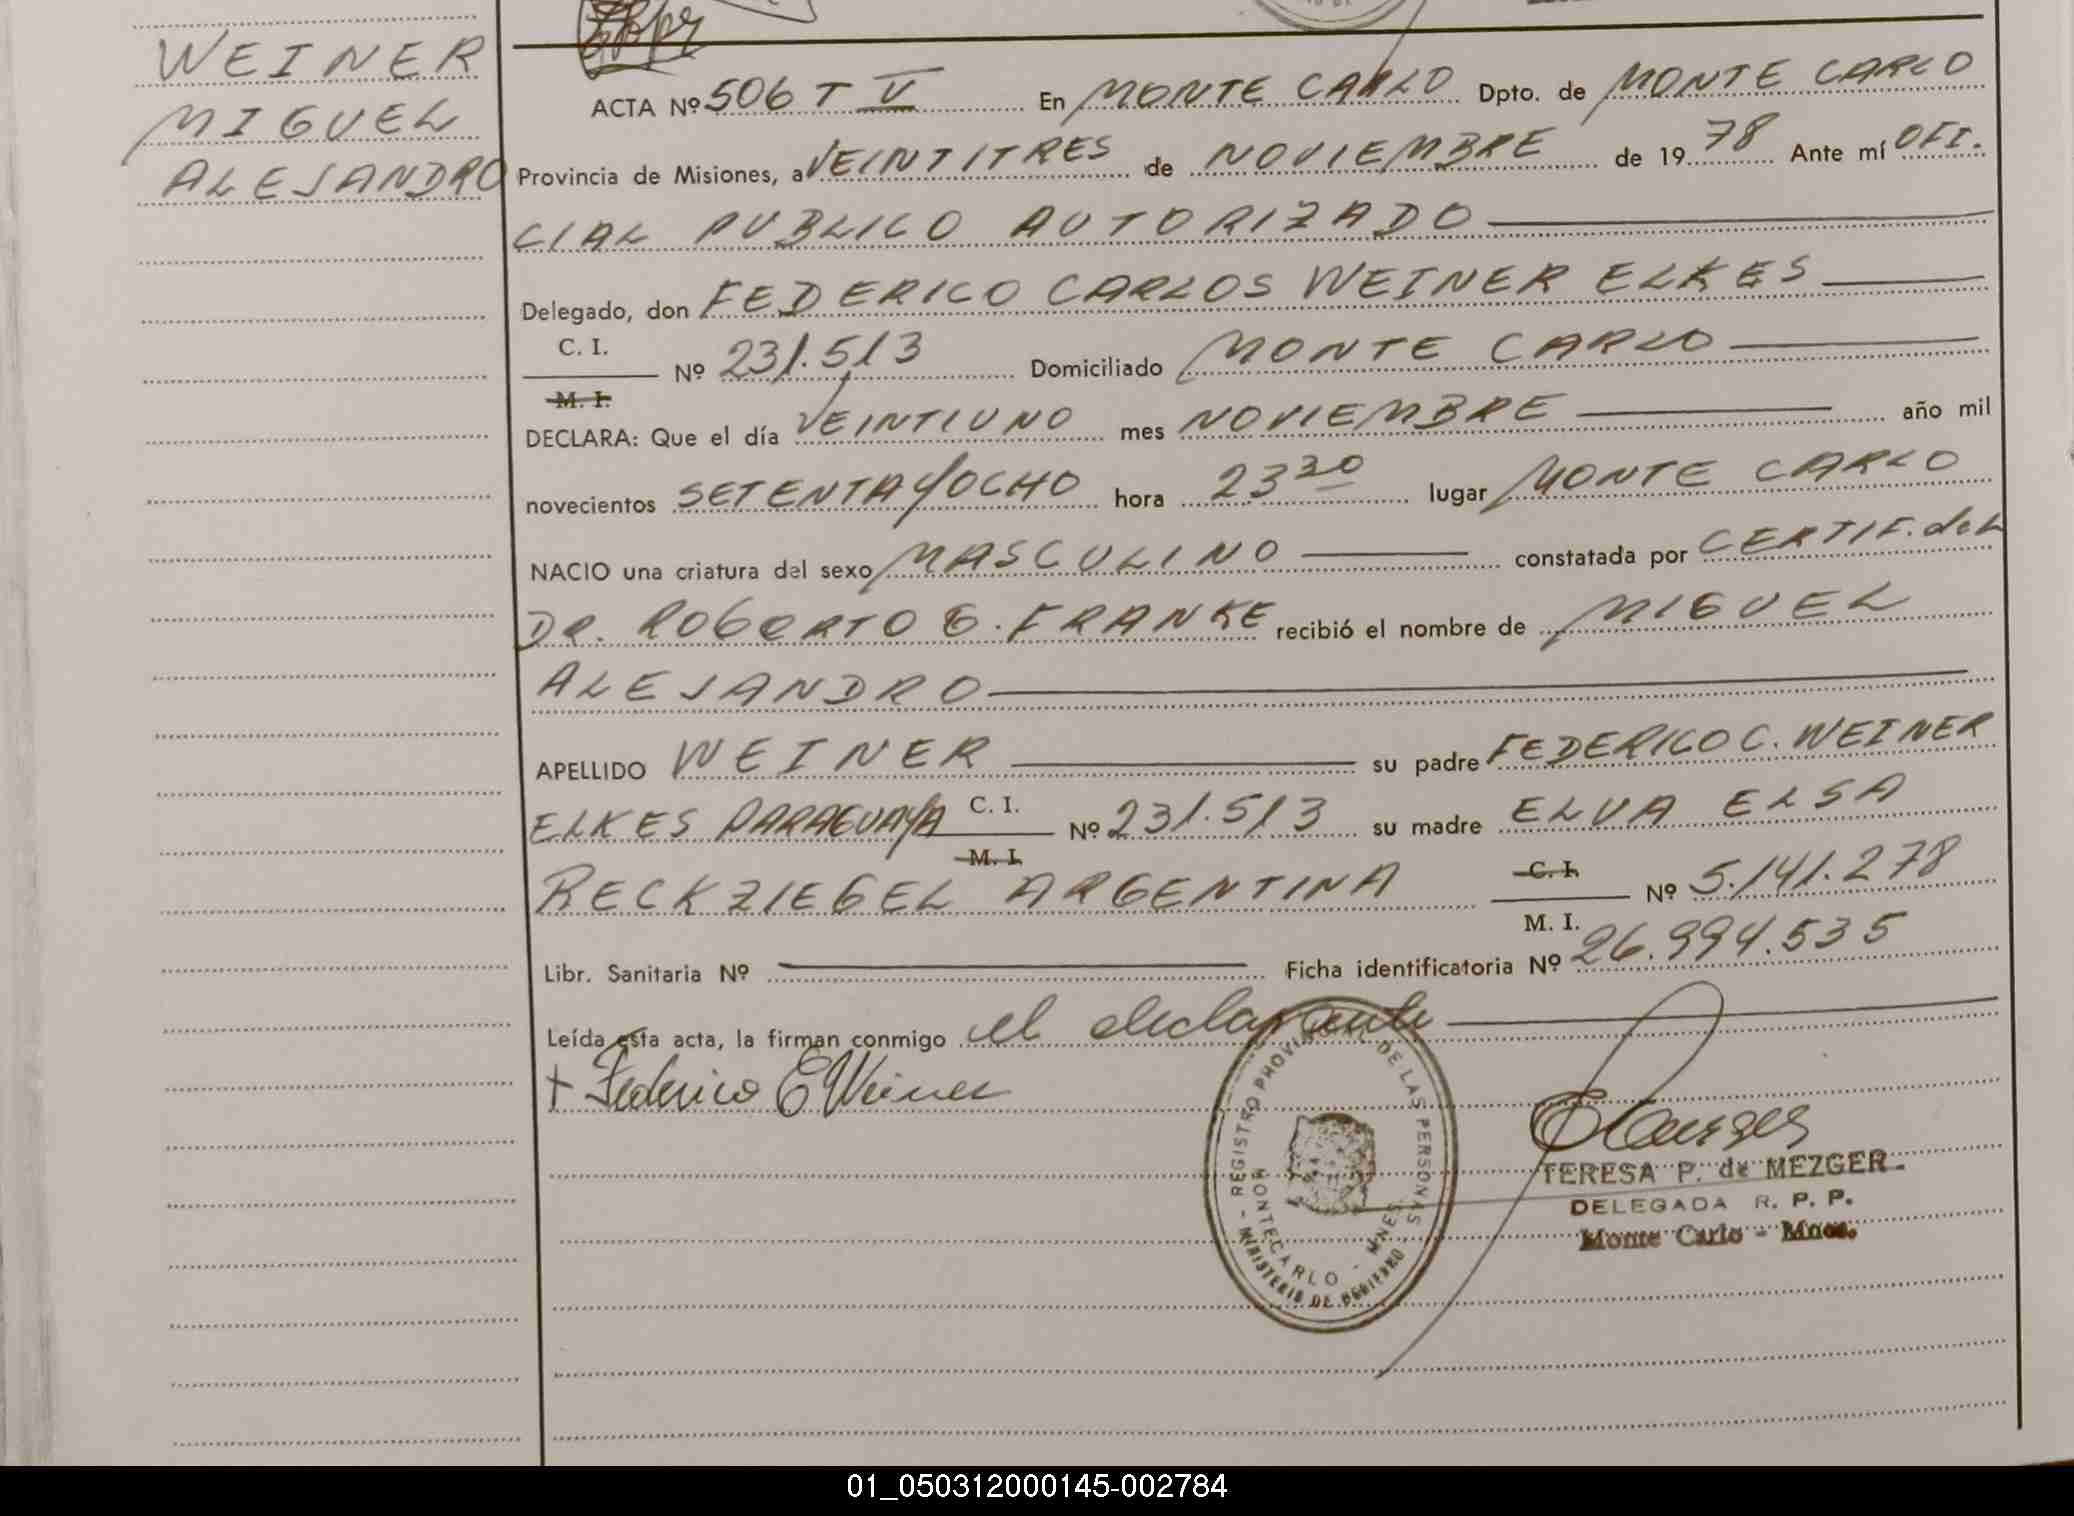 WEINER
MIGUEL
ALEJANDRO
ACTA Nº 506 T V En MONTE CARLO Dpto. de MONTE CARLO
Provincia de Misiones, a VEINTITRES de NOVIEMBRE de 1978 Ante mí OFI.
CIAL PUBLICO AUTORIZADO
Delegado, don FEDERICO CARLOS WEINER ELKES
C. I.
M. I.
Nº 231.513 Domiciliado MONTE CARLO
DECLARA: Que el día VEINTIUNO mes NOVIEMBRE año mil
novecientos SETENTA Y OCHO hora 23 30 lugar MONTE CARLO
NACIO una criatura del sexo MASCULINO constatada por CERTIF. del
DR. ROBERTO G. FRANKE recibió el nombre de MIGUEL
ALEJANDRO
APELLIDO WEINER su padre FEDERICO C. WEINER
ELKES PARAGUAYA C. I. Nº 231.513 su madre ELVA ELSA
M. I.
RECKZIEGEL ARGENTINA C. I. Nº 5.141.278
M. I.
Libr. Sanitaria Nº Ficha identificatoria Nº 26.994.535
Leída esta acta, la firman conmigo el declarante
+ Federico C Weiner
REGISTRO PROVINCIAL DE LAS PERSONAS
MONTECARLO - MNES.
- MINISTERIO DE GOBIERNO -
TERESA P. de MEZGER
DELEGADA R. P. P.
Monte Carlo - Mnes.
01_050312000145-002784